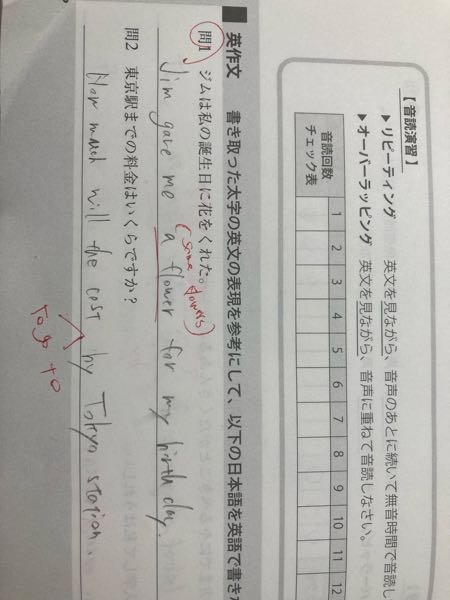 【音読演習】
▶リピーティング 英文を見ながら、音声のあとに続いて無音時間で音読し
▶オーバーラッピング 英文を見ながら、音声に重ねて音読しなさい。
音読回数
チェック表
1 2 3 4 5 6 7 8 9 10 11 12
英作文 書き取った太字の英文の表現を参考にして、以下の日本語を英語で書きな
問1 ジムは私の誕生日に花をくれた。
(some flowers)
Jim gave me a flower for my birthday.
問2 東京駅までの料金はいくらですか?
How much will the cost by Tokyo station.
to go to